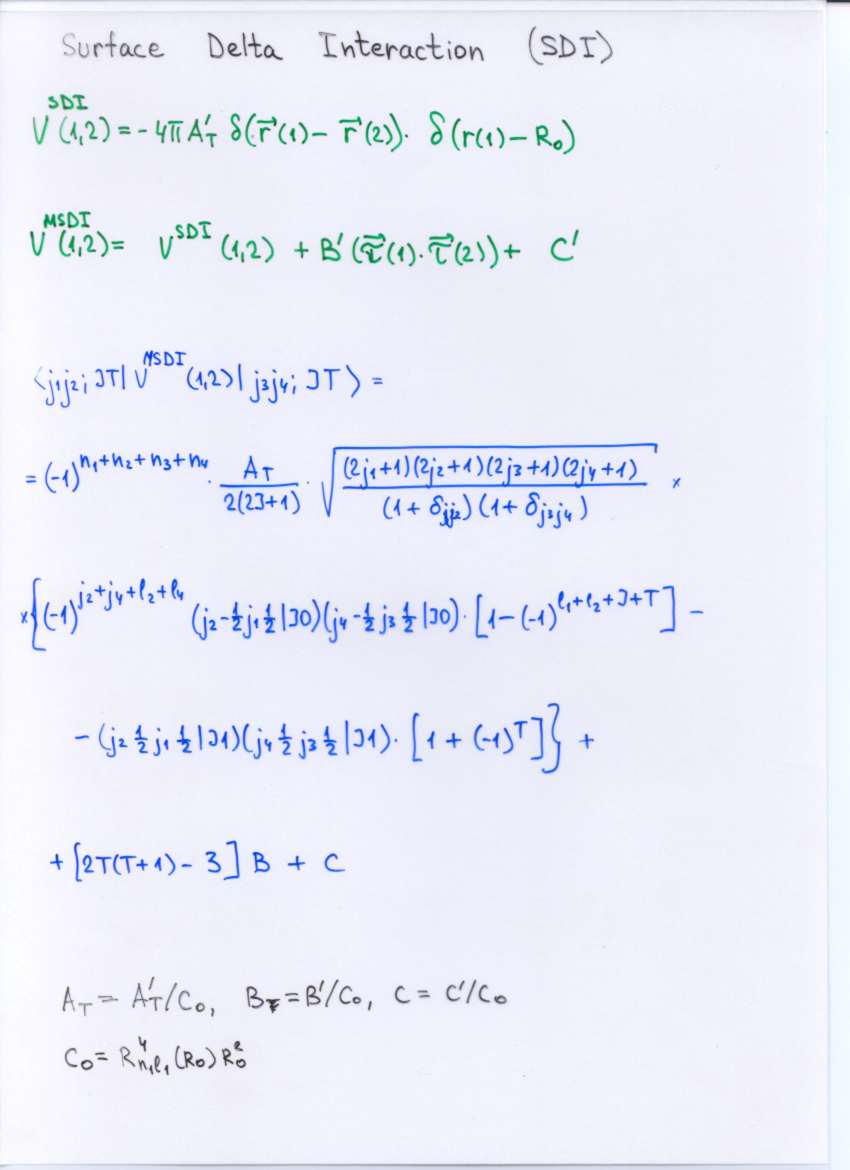 Surface Delta Interaction (SDI)
V^SDI (1,2) = - 4π A'_T δ(r⃗(1) - r⃗(2)) · δ(r(1) - R₀)
V^MSDI (1,2) = V^SDI (1,2) + B'(τ⃗(1)·τ⃗(2)) + C'
⟨j₁j₂; JT| V^MSDI (1,2) | j₃j₄; JT⟩ =
= (-1)^(n₁+n₂+n₃+n₄) · A_T / 2(2J+1) · √((2j₁+1)(2j₂+1)(2j₃+1)(2j₄+1) / (1+δ_j₁j₂)(1+δ_j₃j₄)) ×
× {(-1)^(j₂+j₄+l₂+l₄) (j₂ -½ j₁ ½ | J0)(j₄ -½ j₃ ½ | J0) · [1 - (-1)^(l₁+l₂+J+T)] -
- (j₂ ½ j₁ ½ | J1)(j₄ ½ j₃ ½ | J1) · [1 + (-1)^T]} +
+ [2T(T+1) - 3] B + C
A_T = A'_T/C₀, B = B'/C₀, C = C'/C₀
C₀ = R⁴_n₁l₁ (R₀) R₀²